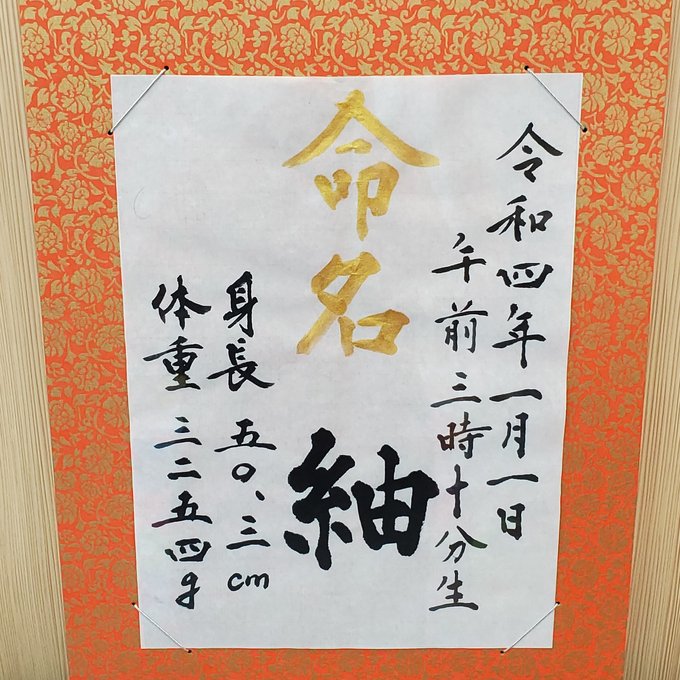 令和四年一月一日
午前三時十分生
命名 紬
身長 五〇.三cm
体重 三二五四g